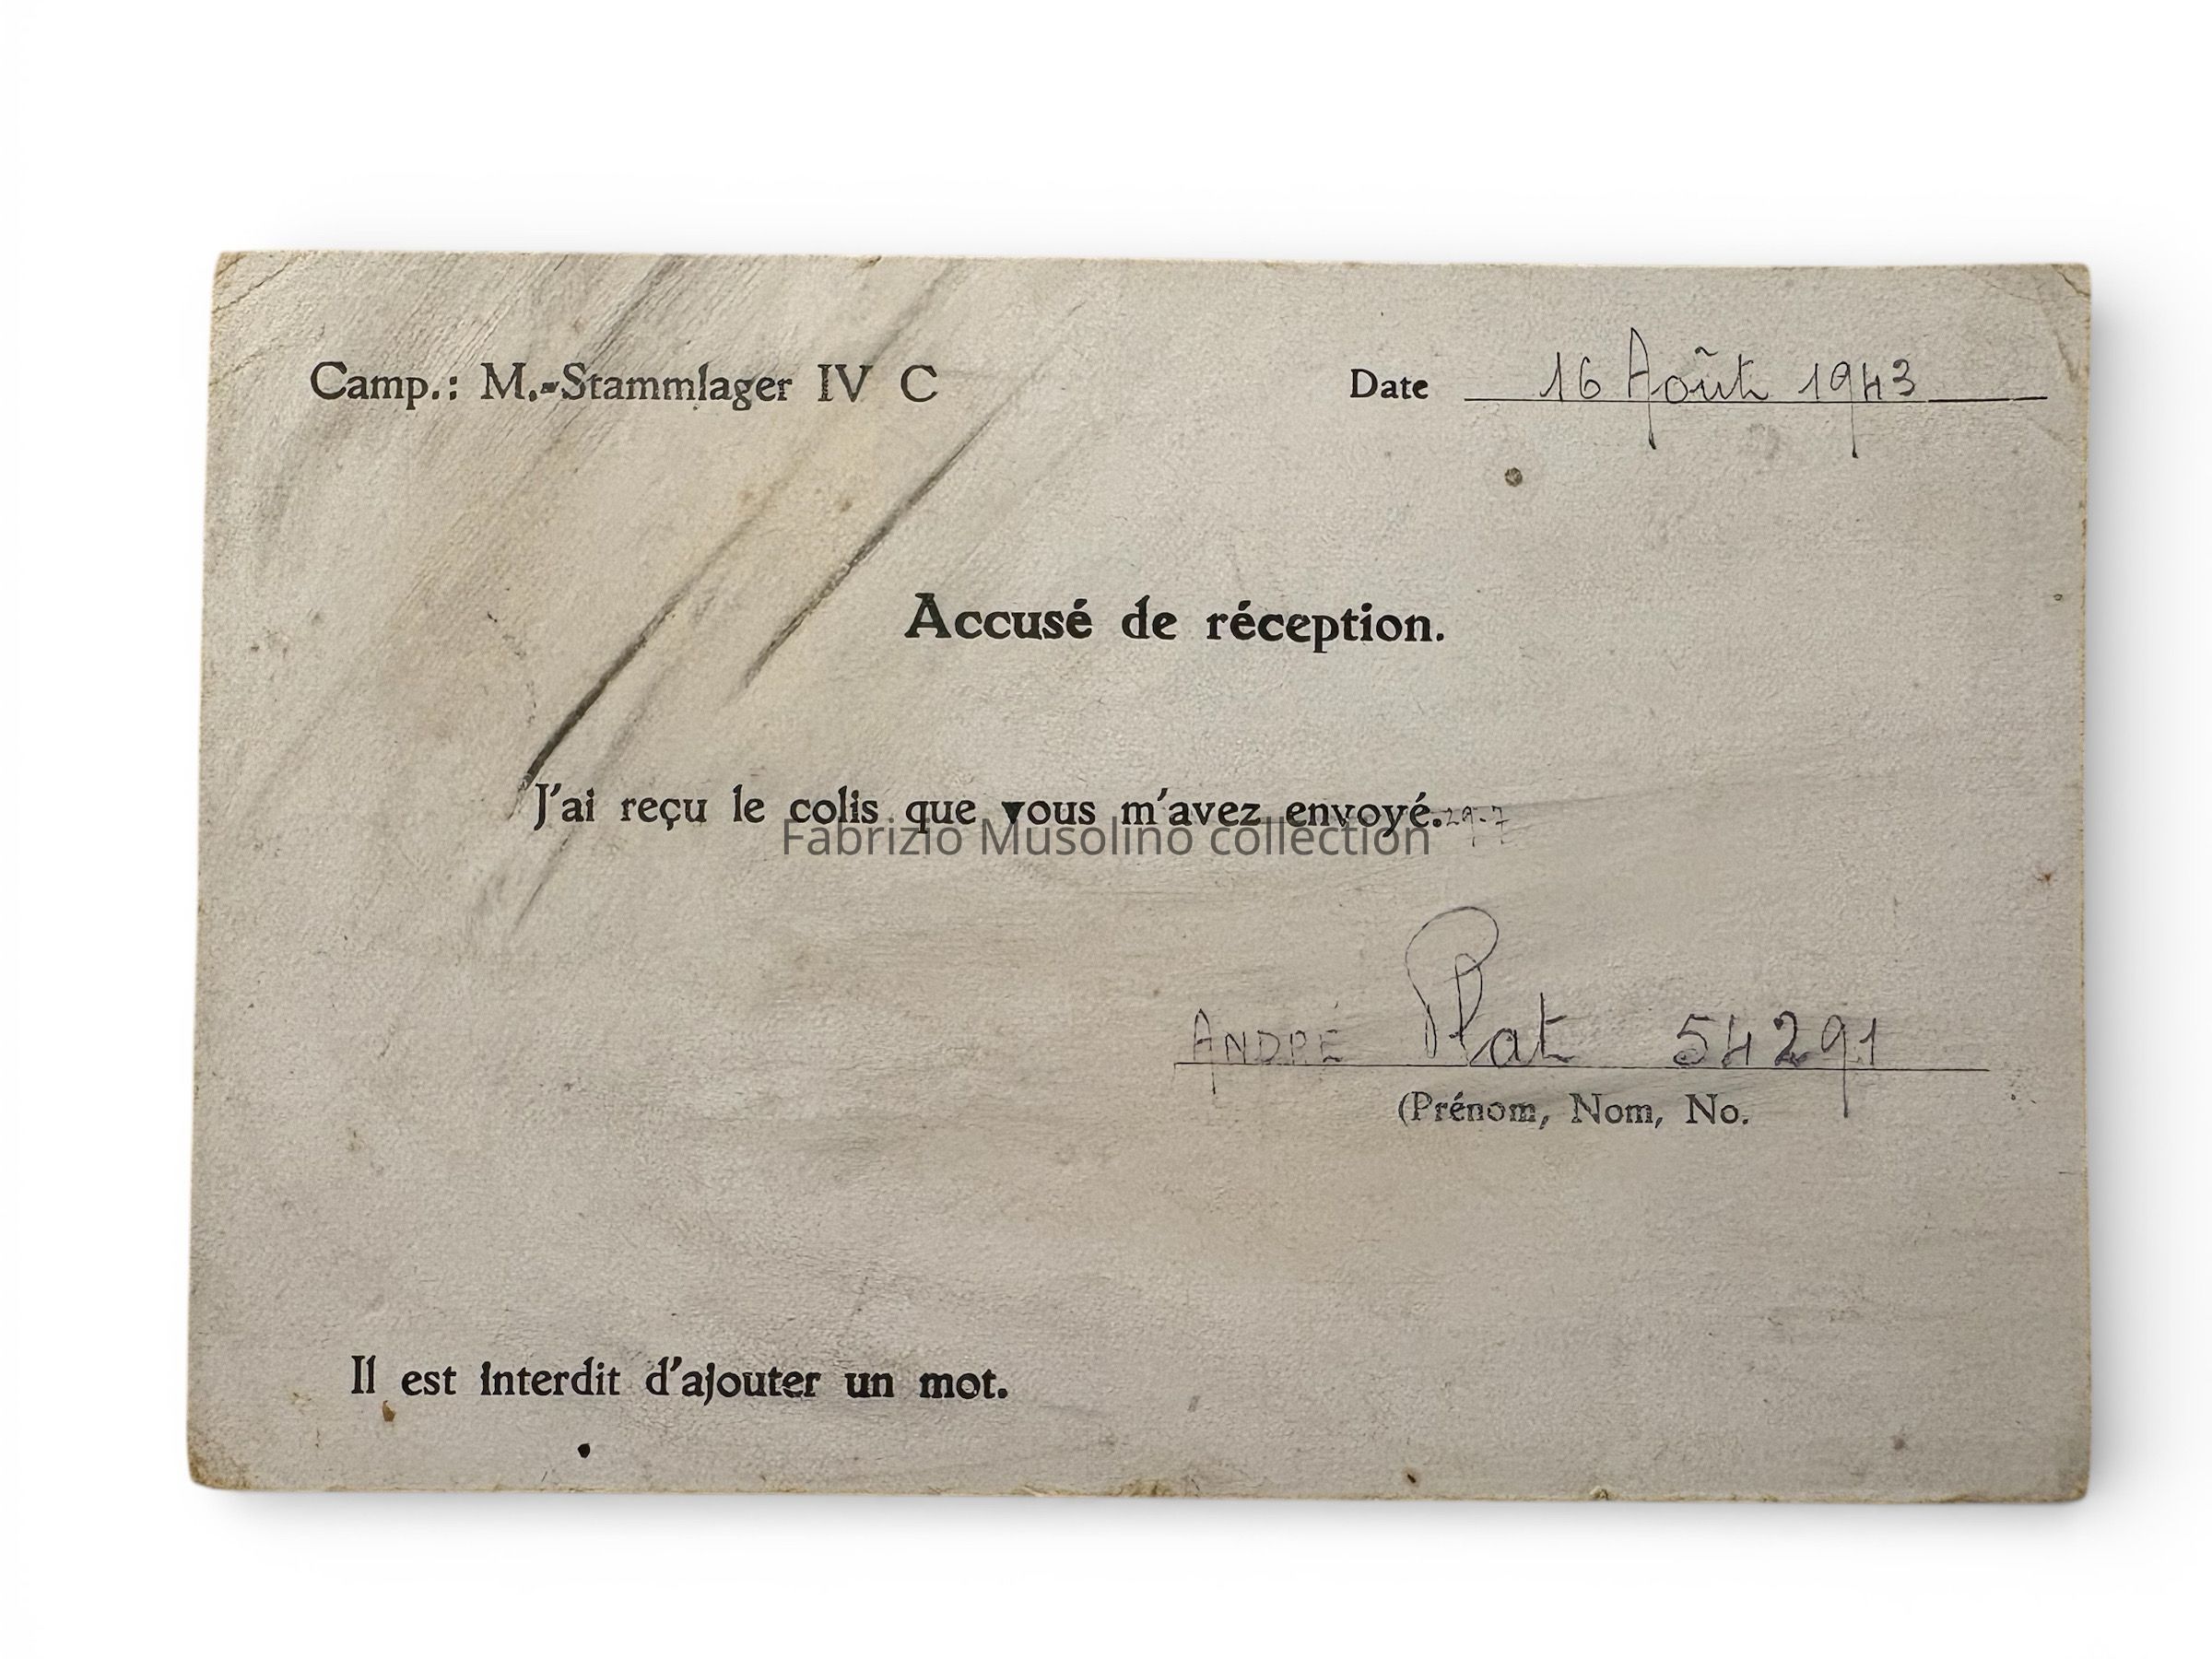 Camp.: M.-Stammlager IV C
Date 16 Août 1943
Accusé de réception.
J'ai reçu le colis que vous m'avez envoyé. 29-7
Fabrizio Musolino collection
ANDRÉ Plat 54291
(Prénom, Nom, No.
Il est interdit d'ajouter un mot.